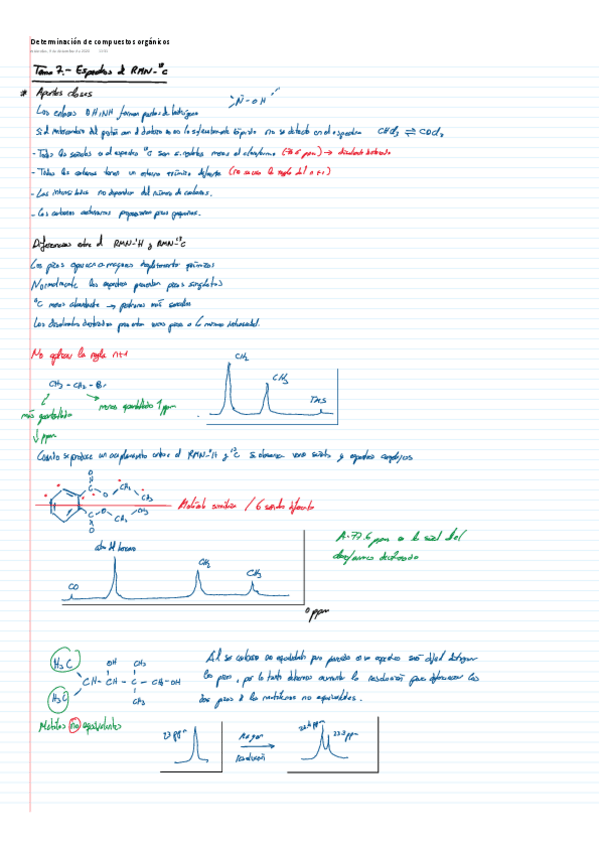 Determinación de compuestos orgánicos
Tema 7.- Espectros de RMN-¹³C
* Apuntes clases
N-OH
Los enlaces OH/NH forman puentes de hidrógeno
Si el intercambio del protón con el deuterio no es lo suficientemente rápido no se detecta en el espectro CHCl₃ ⇌ CDCl₃
- Todas las señales en el espectro ¹³C son singletes menos el cloroformo (77.6 ppm) → disolvente deuterado
- Todos los carbonos tienen un entorno químico diferente (no se usa la regla del n+1)
- Las intensidades no dependen del número de carbonos.
- Los carbonos cuaternarios proporcionan picos pequeños.
Diferencias entre el RMN-¹H y RMN-¹³C
Los picos aparecen a mayores desplazamientos químicos
Normalmente los espectros presentan picos singletes
¹³C menos abundante → pedimos más scans
Los disolventes deuterados presentan unos picos a la misma intensidad.
No aplicar la regla n+1
CH₂
CH₃
TMS
CH₃ - CH₂ - Br
más apantallado
menos apantallado ↑ ppm
↓ ppm
Cuando se produce un acoplamiento entre el RMN-¹H y ¹³C se observan varias señales y espectros complejos
O
C
O
CH₂
CH₃
C
O
O
CH₂
CH₃
Molécula simétrica / 6 señales diferentes
A 77.6 ppm es la señal del cloroformo deuterado
CO
CH₂
CH₃
0 ppm
H₃C
H₃C
OH
CH₃
CH - CH - C - CH-OH
CH₃
Metilos no equivalentes
Al ser carbonos no equivalentes pero parecidos en un espectro será difícil distinguir
los picos, por lo tanto debemos aumentar la resolución para diferenciar los
dos picos de los metilos no equivalentes.
23 ppm
Mayor
resolución
22.3 ppm